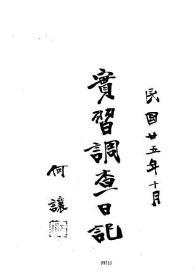 民国廿五年十月
實習調查日記
何讓